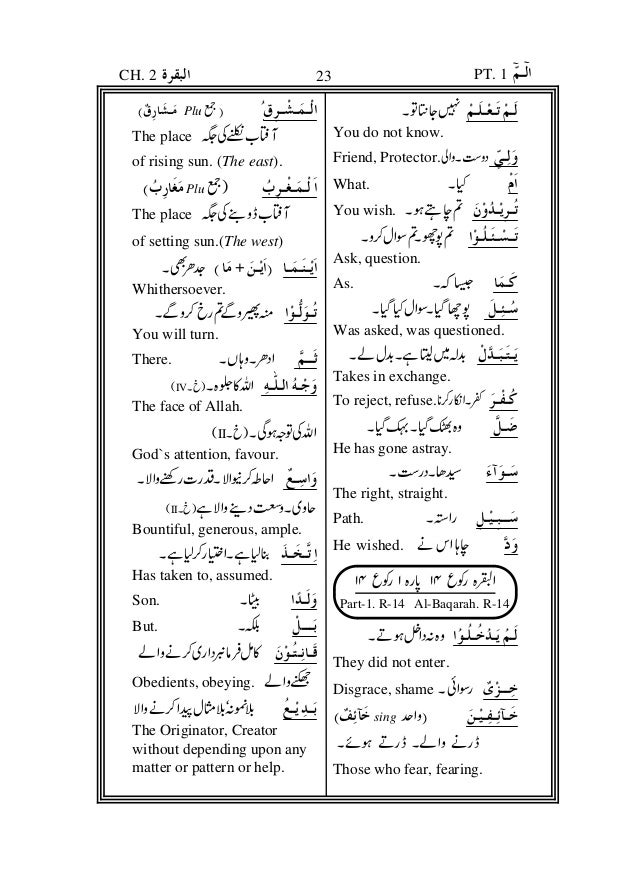 CH. 2 البقرة 23 PT. 1 الٓـمّٓ
لَمْ تَعْلَمْ نہیں جانتا تو۔
You do not know.
وَلِيّ دوست۔ والی۔ Friend, Protector.
اَمْ کیا۔ What.
تُرِيْدُوْنَ تم چاہتے ہو۔ You wish.
تَسْئَلُوْا تم پوچھو۔ تم سوال کرو۔
Ask, question.
كَمَا جیسا کہ۔ As.
سُئِلَ پوچھا گیا۔ سوال کیا گیا۔
Was asked, was questioned.
يَتَبَدَّلْ بدلہ میں لیتا ہے۔ بدل لے۔
Takes in exchange.
كُفْرَ کفر۔ انکار کرنا۔ To reject, refuse.
ضَلَّ وہ بھٹک گیا۔ بہک گیا۔
He has gone astray.
سَوَآءَ سیدھا۔ درست۔
The right, straight.
سَبِيْلِ راستہ۔ Path.
وَدَّ چاہا اس نے He wished.
البقرہ رکوع ۱۴ پارہ ۱ رکوع ۱۴
Part-1. R-14 Al-Baqarah. R-14
لَمْ يَدْخُلُوْا وہ نہ داخل ہوتے۔
They did not enter.
خِزْىٌ رسوائی۔ Disgrace, shame
خَآئِفِيْنَ (واحد sing خَآئِفٌ)
ڈرنے والے۔ ڈرتے ہوئے۔
Those who fear, fearing.
اَلْمَشْرِقُ (جمع Plu مَشَارِقُ)
آفتاب نکلنے کی جگہ The place
of rising sun. (The east).
اَلْمَغْرِبُ (جمع Plu مَغَارِبُ)
آفتاب ڈوبنے کی جگہ The place
of setting sun.(The west)
اَيْنَمَا (اَيْنَ + مَا) جدھر بھی۔
Whithersoever.
تُوَلُّوْا منہ پھیرو گے تم رخ کرو گے۔
You will turn.
ثَمَّ ادھر۔ وہاں۔ There.
وَجْهُ اللّٰهِ اللہ کا جلوہ۔ (خ۔IV)
The face of Allah.
اللہ کی توجہ ہوگی۔ (خ۔II)
God`s attention, favour.
وَاسِعٌ احاطہ کرنیوالا۔ قدرت رکھنے والا۔
حاوی۔ وسعت دینے والا ہے (خ۔II)
Bountiful, generous, ample.
اِتَّخَذَ بنالیا ہے۔ اختیار کرلیا ہے۔
Has taken to, assumed.
وَلَدًا بیٹا۔ Son.
بَلْ بلکہ۔ But.
قَانِتُوْنَ کامل فرمانبرداری کرنے والے
جھکنے والے۔ Obedients, obeying.
بَدِيْعُ بلا نمونہ بلا مثال پیدا کرنے والا
The Originator, Creator
without depending upon any
matter or pattern or help.